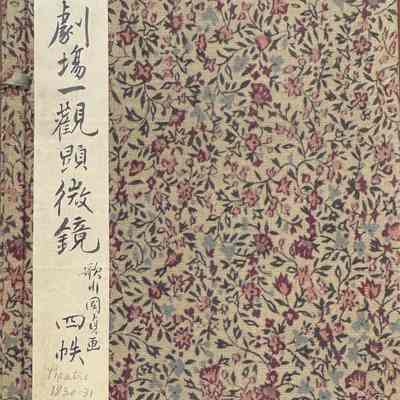 劇場一觀顕微鏡
歌川国貞画
四帙
Theatre
1830-31